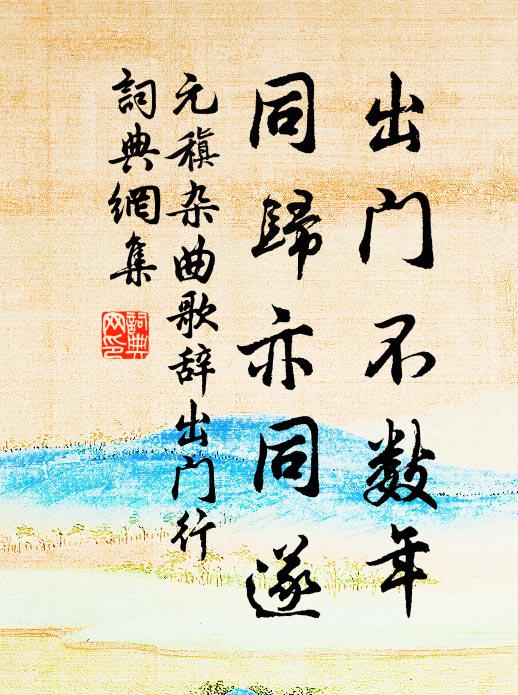 出门不数年
同歸亦同遂
元稹杂曲歌辞出门行
詞典網集
詞典网印